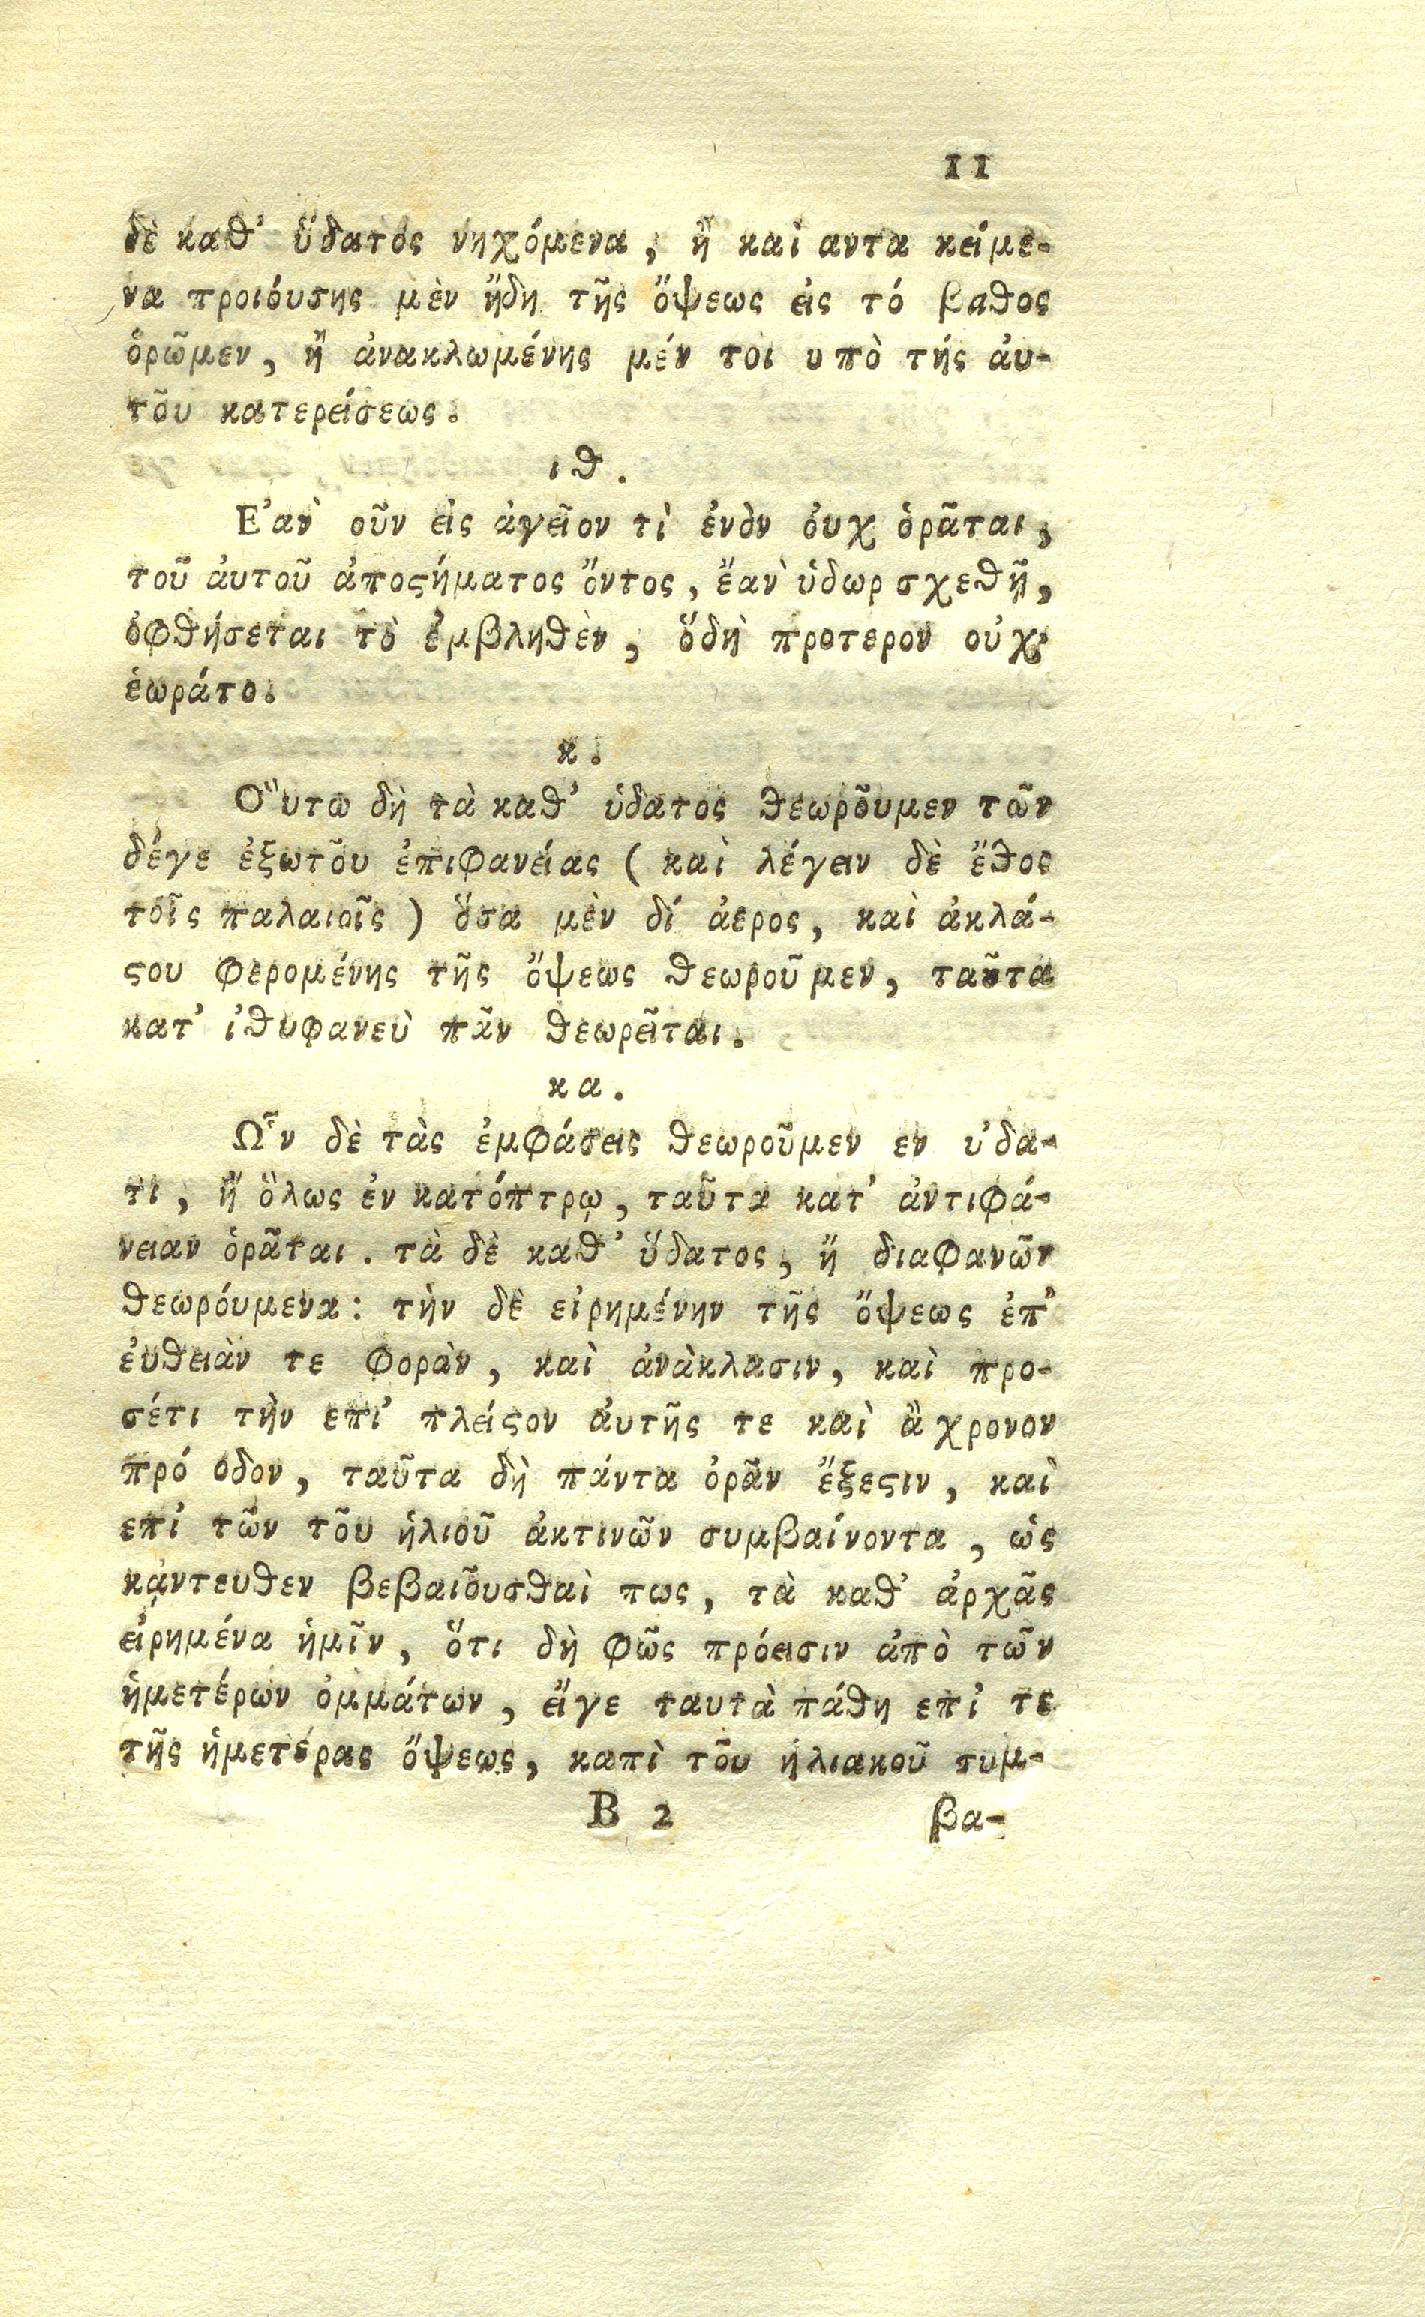 11
δὲ καθ’ ὕδατὸς νηχόμενα, ἢ καὶ αντα κείμε-
να προιόυσης μὲν ἤδη τῆς ὄψεως εἰς τό βαθος
ὁρῶμεν, ἢ ἀνακλωμένης μέν τοι υπὸ τής ἀυ-
τõυ κατερείσεως.
ιθ.
Ε’αν̀ οῦν εἰς ἀγεῖον τὶ ἐνὸν ὀυχ ὁρᾶται,
τοῦ ἀυτοῦ ἀποςήματος ὄντος, ἔαν̀ ὑδωρ σχεθῆ,
ὀφθήσεται τὸ ἐμβληθὲν, ὅδὴ προτερον οὐχ’
ἑωράτο.
κ.
Ο῞υτω δὴ τὰ καθ’ ὑδατος θεωρõυμεν τῶν
δέγε ἐξωτõυ ἐπιφανείας (καὶ λέγειν δὲ ἔθος
τõῖς παλαιοῖς) ὅσα μὲν δί ἀερος, καὶ ἀκλά-
ςου φερομένης τῆς ὄψεως θεωροῦμεν, ταῦτα
κατ’ ἰθυφανεὺ πᾶν θεωρεῖται.
κα.
Ω῏ν δὲ τὰς ἐμφάσεις θεωροῦμεν εν υ’δα-
τι, ἢ ὅλως ἐν κατόπτρῳ, ταῦτα κατ’ ἀντιφά-
νειαν ὁρᾶται. τὰ δὲ καθ’ ὕδατος, ἢ διαφανῶν
θεωρόυμενα: τὴν δὲ εἰρημένην τῆς ὄψεως ἐπ’
ἐυθειὰν τε φορὰν, καὶ ἀνὰκλασιν, καὶ προ-
σέτι τὴν επι’ πλείςον ἀυτῆς τε καὶ ἂ χρονον
πρό οδον, ταῦτα δὴ πάντα ὁρᾶν ἔξεςιν, καὶ
επἰ τῶν τõυ ἡλιοῦ ἀκτινῶν συμβαίνοντα, ὡς
κᾀντευθεν βεβαιõυσθαὶ πως, τὰ καθ’ ἀρχᾶς
εἰρημένα ἡμῖν, ὅτι δὴ φῶς πρόεισιν ἀπὸ τῶν
ἡμετέρων ὀμμάτων, εἴγε ταυτὰ πάθη επἰ τε
τῆς ἡμετέρας ὄψεως, καπὶ τõυ ἡλιακοῦ συμ-
B 2 βα-